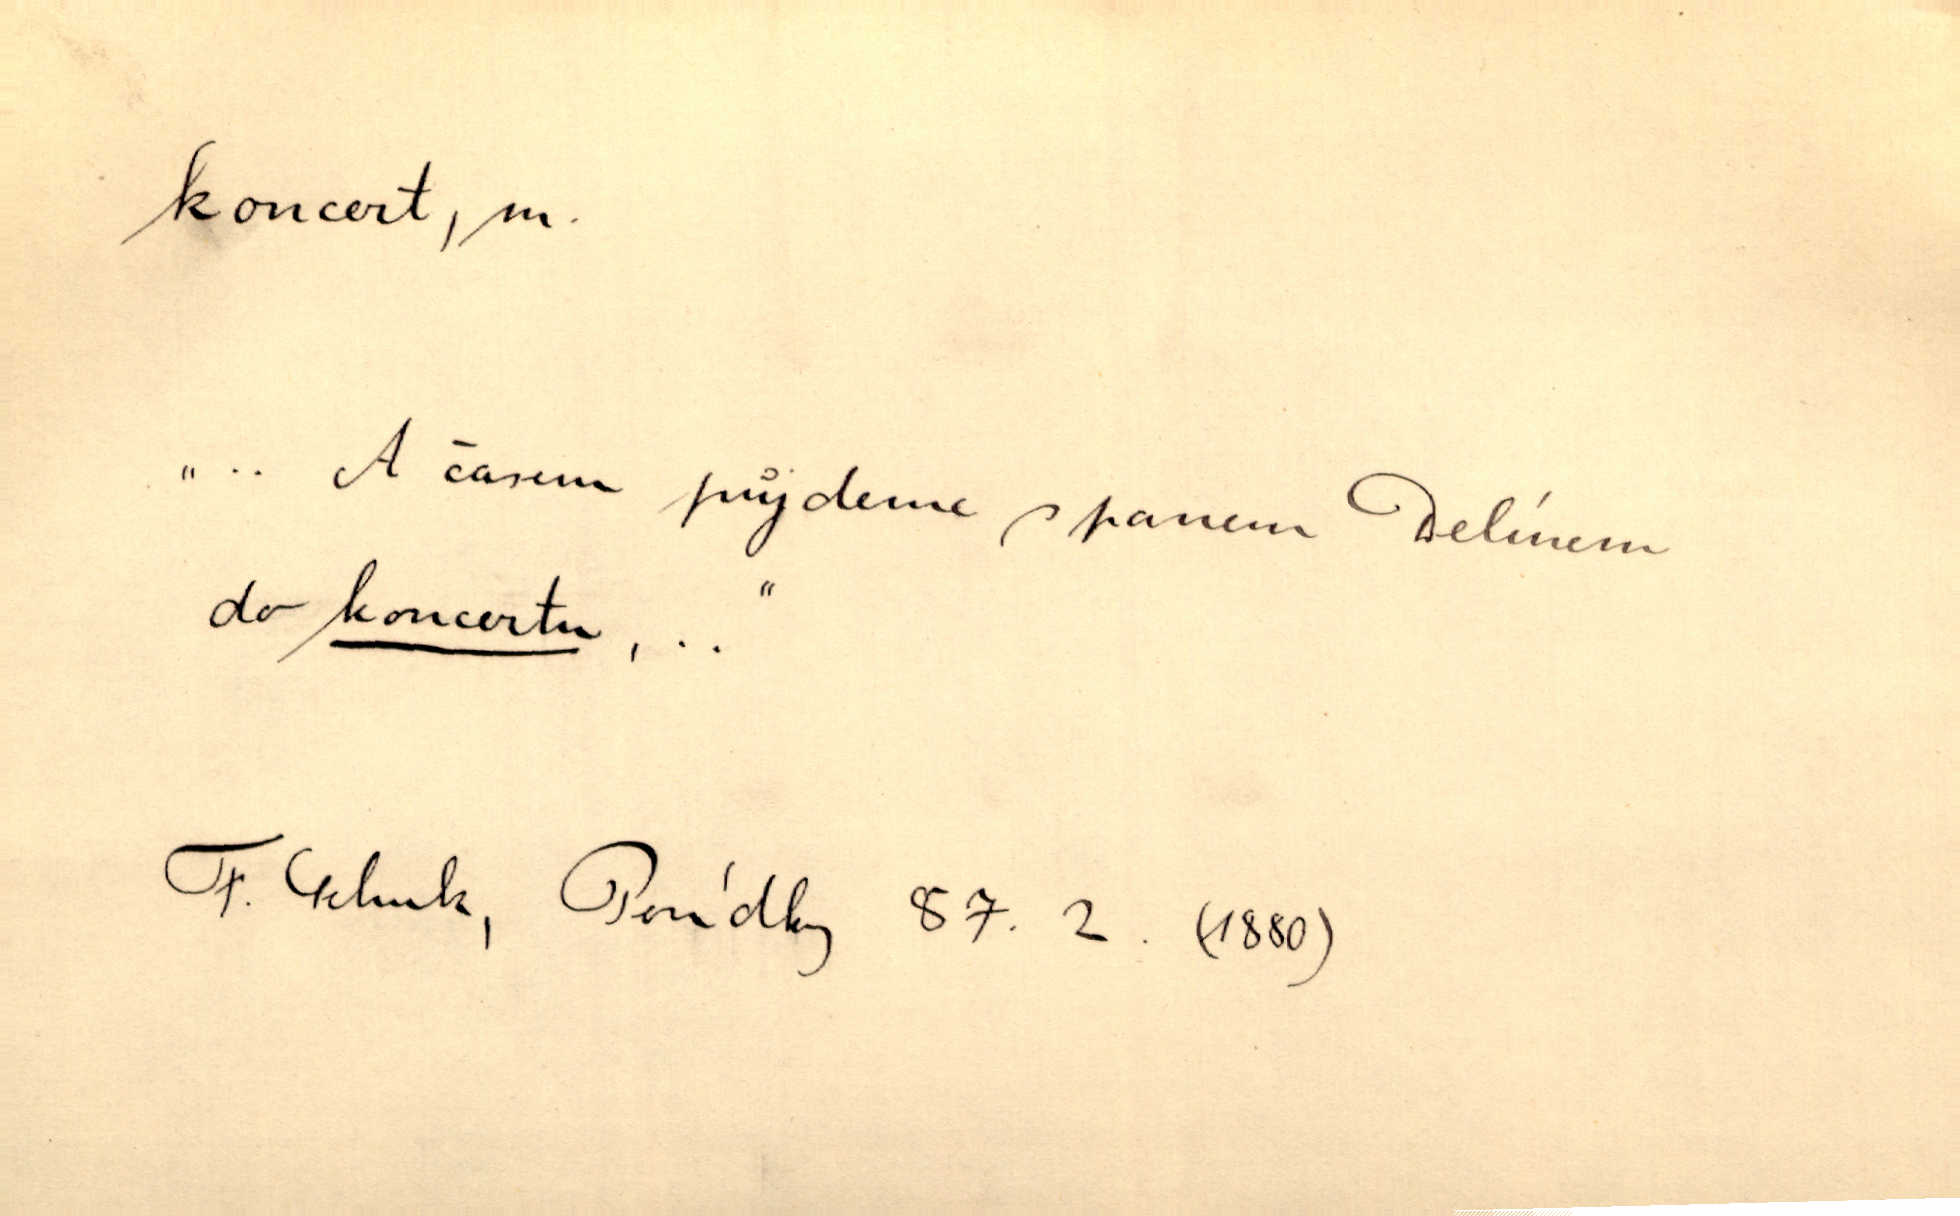 koncert, m.
".. A časem půjdeme s panem Delínem
do koncertu, .. "
F. 87. 2. (1880)